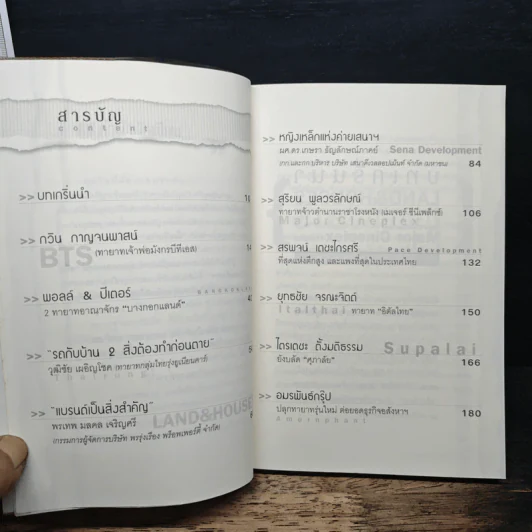 สารบัญ
content
>> บทเกริ่นนำ
>> กวิน กาญจนพาสน์
BTS
(ทายาทเจ้าพ่อมังกรบีทีเอส)
>> พอลล์ & ปีเตอร์
2 ทายาทอาณาจักร "บางกอกแลนด์"
>> "รถกับบ้าน 2 สิ่งต้องทำก่อนตาย"
วุฒิชัย เผอิญโชค (ทายาทกลุ่มไทยรุ่งยูเนี่ยนคาร์)
>> "แบรนด์เป็นสิ่งสำคัญ"
LAND&HOUSE
พรเทพ มลคล เจริญศรี
(กรรมการผู้จัดการบริษัท พรรุ่งเรือง พร็อพเพอร์ตี้ จำกัด)
>> หญิงเหล็กแห่งค่ายเสนาฯ
ผศ.ดร.เกษรา ธัญลักษณ์ภาคย์ Sena Development
84
>> สุริยน พูลวรลักษณ์
ทายาทจ้าวตำนานราชาโรงหนัง (เมเจอร์ ซีนีเพล็กซ์) 106
Major Cineplex
>> สรพจน์ เตชะไกรศรี Pace Development
ที่สุดแห่งตึกสูง และแพงที่สุดในประเทศไทย 132
>> ยุทธชัย จรณะจิตต์
Italthai ทายาท "อิตัลไทย" 150
>> ไตรเตชะ ตั้งมติธรรม Supalai
ยังบลัด "ศุภาลัย" 166
>> อมรพันธ์กรุ๊ป
ปลุกทายาทรุ่นใหม่ ต่อยอดธุรกิจอสังหาฯ 180
Amornphant